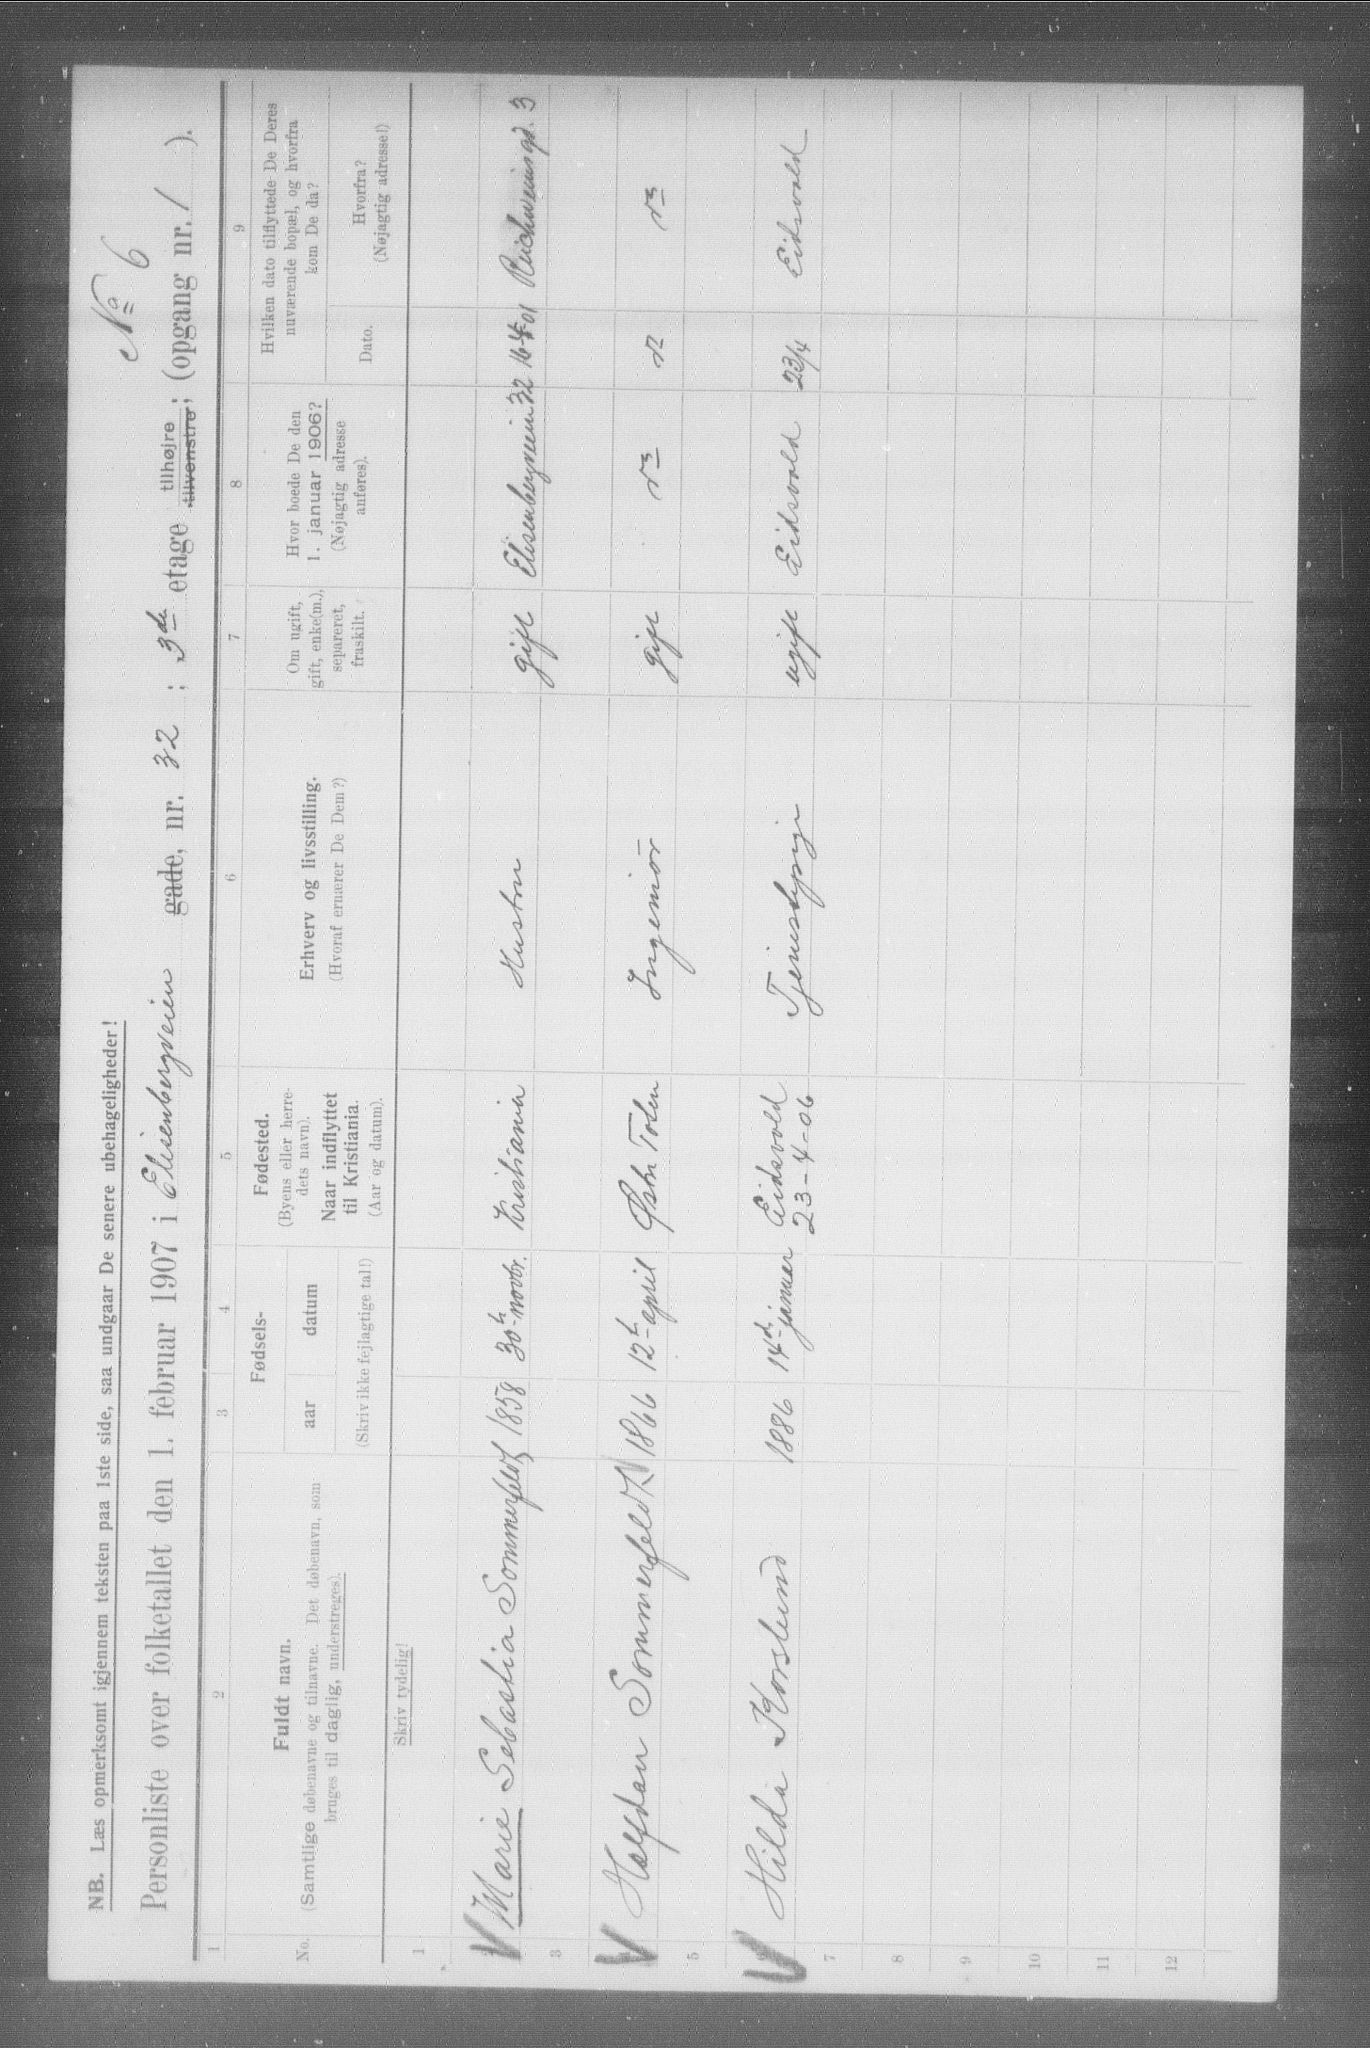 Nº 6
NB. Læs opmerksomt igjennem teksten paa 1ste side, saa undgaar De senere ubehageligheder!
Personliste over folketallet den 1. februar 1907 i Elisenbergveien gade, nr. 32 ; 3de etage tilhøjre tilvenstre; (opgang nr. 1 ).
1 2 3 4 5 6 7 8 9
No.
Fuldt navn.
(Samtlige døbenavne og tilnavne. Det døbenavn, som
bruges til daglig, understreges).
Fødsels-
aar datum
(Skriv ikke fejlagtige tal!)
Fødested.
(Byens eller herre-
dets navn).
Naar indflyttet
til Kristiania.
(Aar og datum).
Erhverv og livsstilling.
(Hvoraf ernærer De Dem?)
Om ugift,
gift, enke(m.),
separeret,
fraskilt.
Hvor boede De den
1. januar 1906?
(Nøjagtig adresse
anføres).
Hvilken dato tilflyttede De Deres
nuværende bopæl, og hvorfra
kom De da?
Dato.
Hvorfra?
(Nøjagtig adresse!)
Skriv tydelig!
1
Marie Sebastia Sommerfeldt 1858 30th novbr. Kristiania Hustru gift Elisenbergveien 32 16-4-01 Reichweinsgd. 3
3
Halfdan Sommerfeldt 1866 12th april Østr Toten Ingeniør gift
5
Hilda Korslund 1886 14d januar Eidsvold Tjenestepige ugift Eidsvold 23/4 Eidsvold
23-4-06
7
8
9
10
11
12